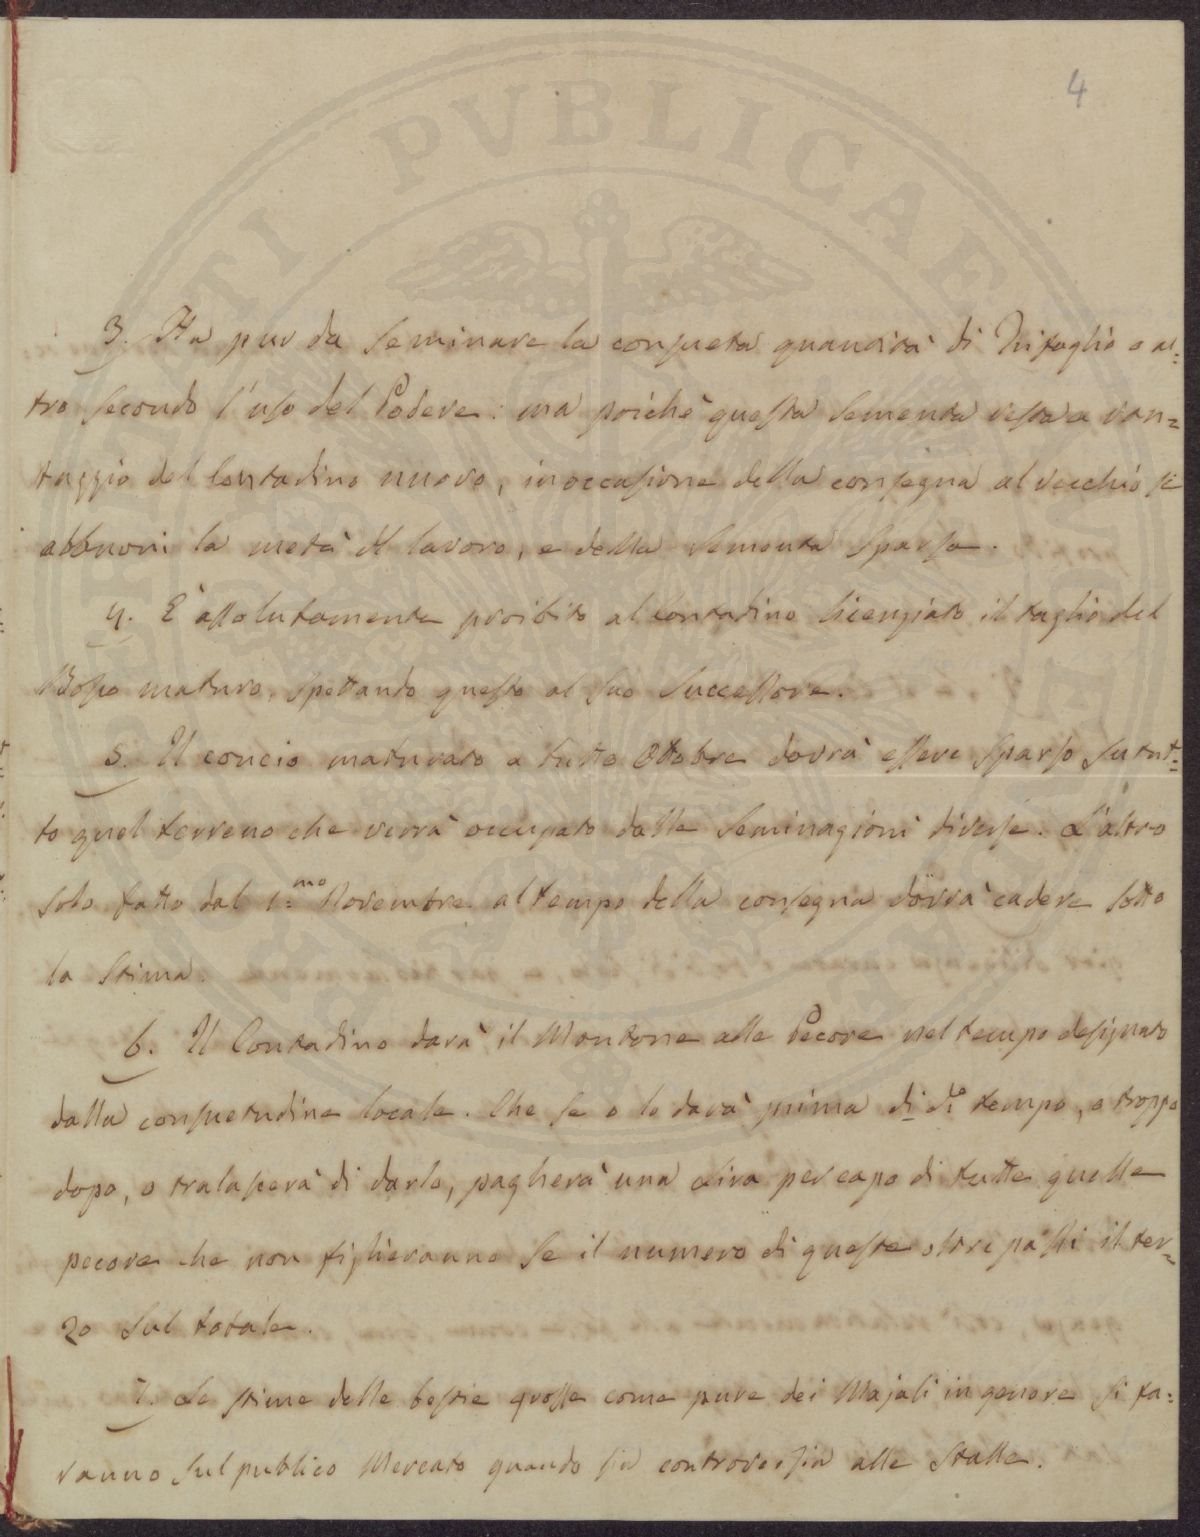 4
PVBLICAE
3. Ha pur da seminare la consueta quantità di Trifoglio o al=
tro secondo l'uso del Podere: ma poichè questa sementa resta a van=
taggio del Contadino nuovo, in occasione della consegna al vecchio si
abbuoni la metà del lavoro, e della sementa sparsa.
4. È assolutamente proibito al Contadino licenziato il taglio del
Bosco maturo, spettando questo al suo Successore.
5. Il concio maturato a tutto Ottobre dovrà essere sparso su tut=
to quel terreno che verrà occupato dalle seminagioni diverse. L'altro
solo fatto dal 1.mo Novembre al tempo della consegna dovrà cadere sotto
la stima.
6. Il Contadino darà il Montone alle Pecore nel tempo designato
dalla consuetudine locale. Che se o lo darà prima di d.o tempo, o troppo
dopo, o tralascerà di darlo, pagherà una Lira per capo di tutte quelle
pecore che non figlieranno se il numero di queste oltrepassi il ter=
zo sul totale.
7. Le stime delle bestie grosse come pure dei Majali in genere si fa=
ranno sul publico Mercato quando sia controversia alle Stalle.